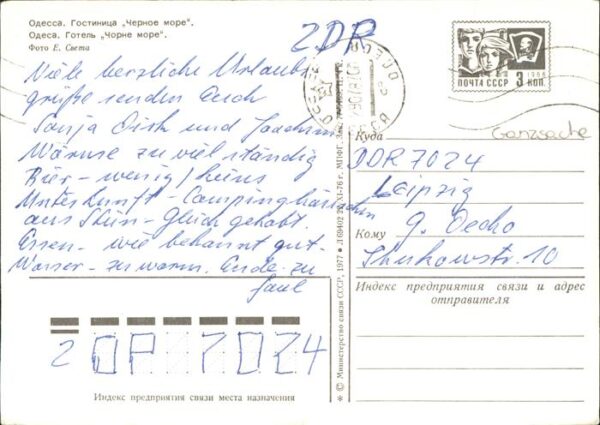 Одесса. Гостиница „Черное море".
Одеса. Готель „Чорне море".
Фото Е. Света
ZDR
Viele herzliche Urlaubs-
grüße senden Euch
und Joachim
zu viel ständig
Bier - wenig / keins
Unterkunft - Campinghäuschen
aus - Glück gehabt.
Essen - wie bekannt gut -
Wasser - zu warm. Ende zu
faul
ПОЧТА СССР 3 КОП.
1966
ОДЕССА
Ganzsache
Куда
DDR 7024
Leipzig
Кому
G.
Shukowstr. 10
Индекс предприятия связи и адрес
отправителя
2 OP 7024
Индекс предприятия связи места назначения
* © Министерство связи СССР, 1977